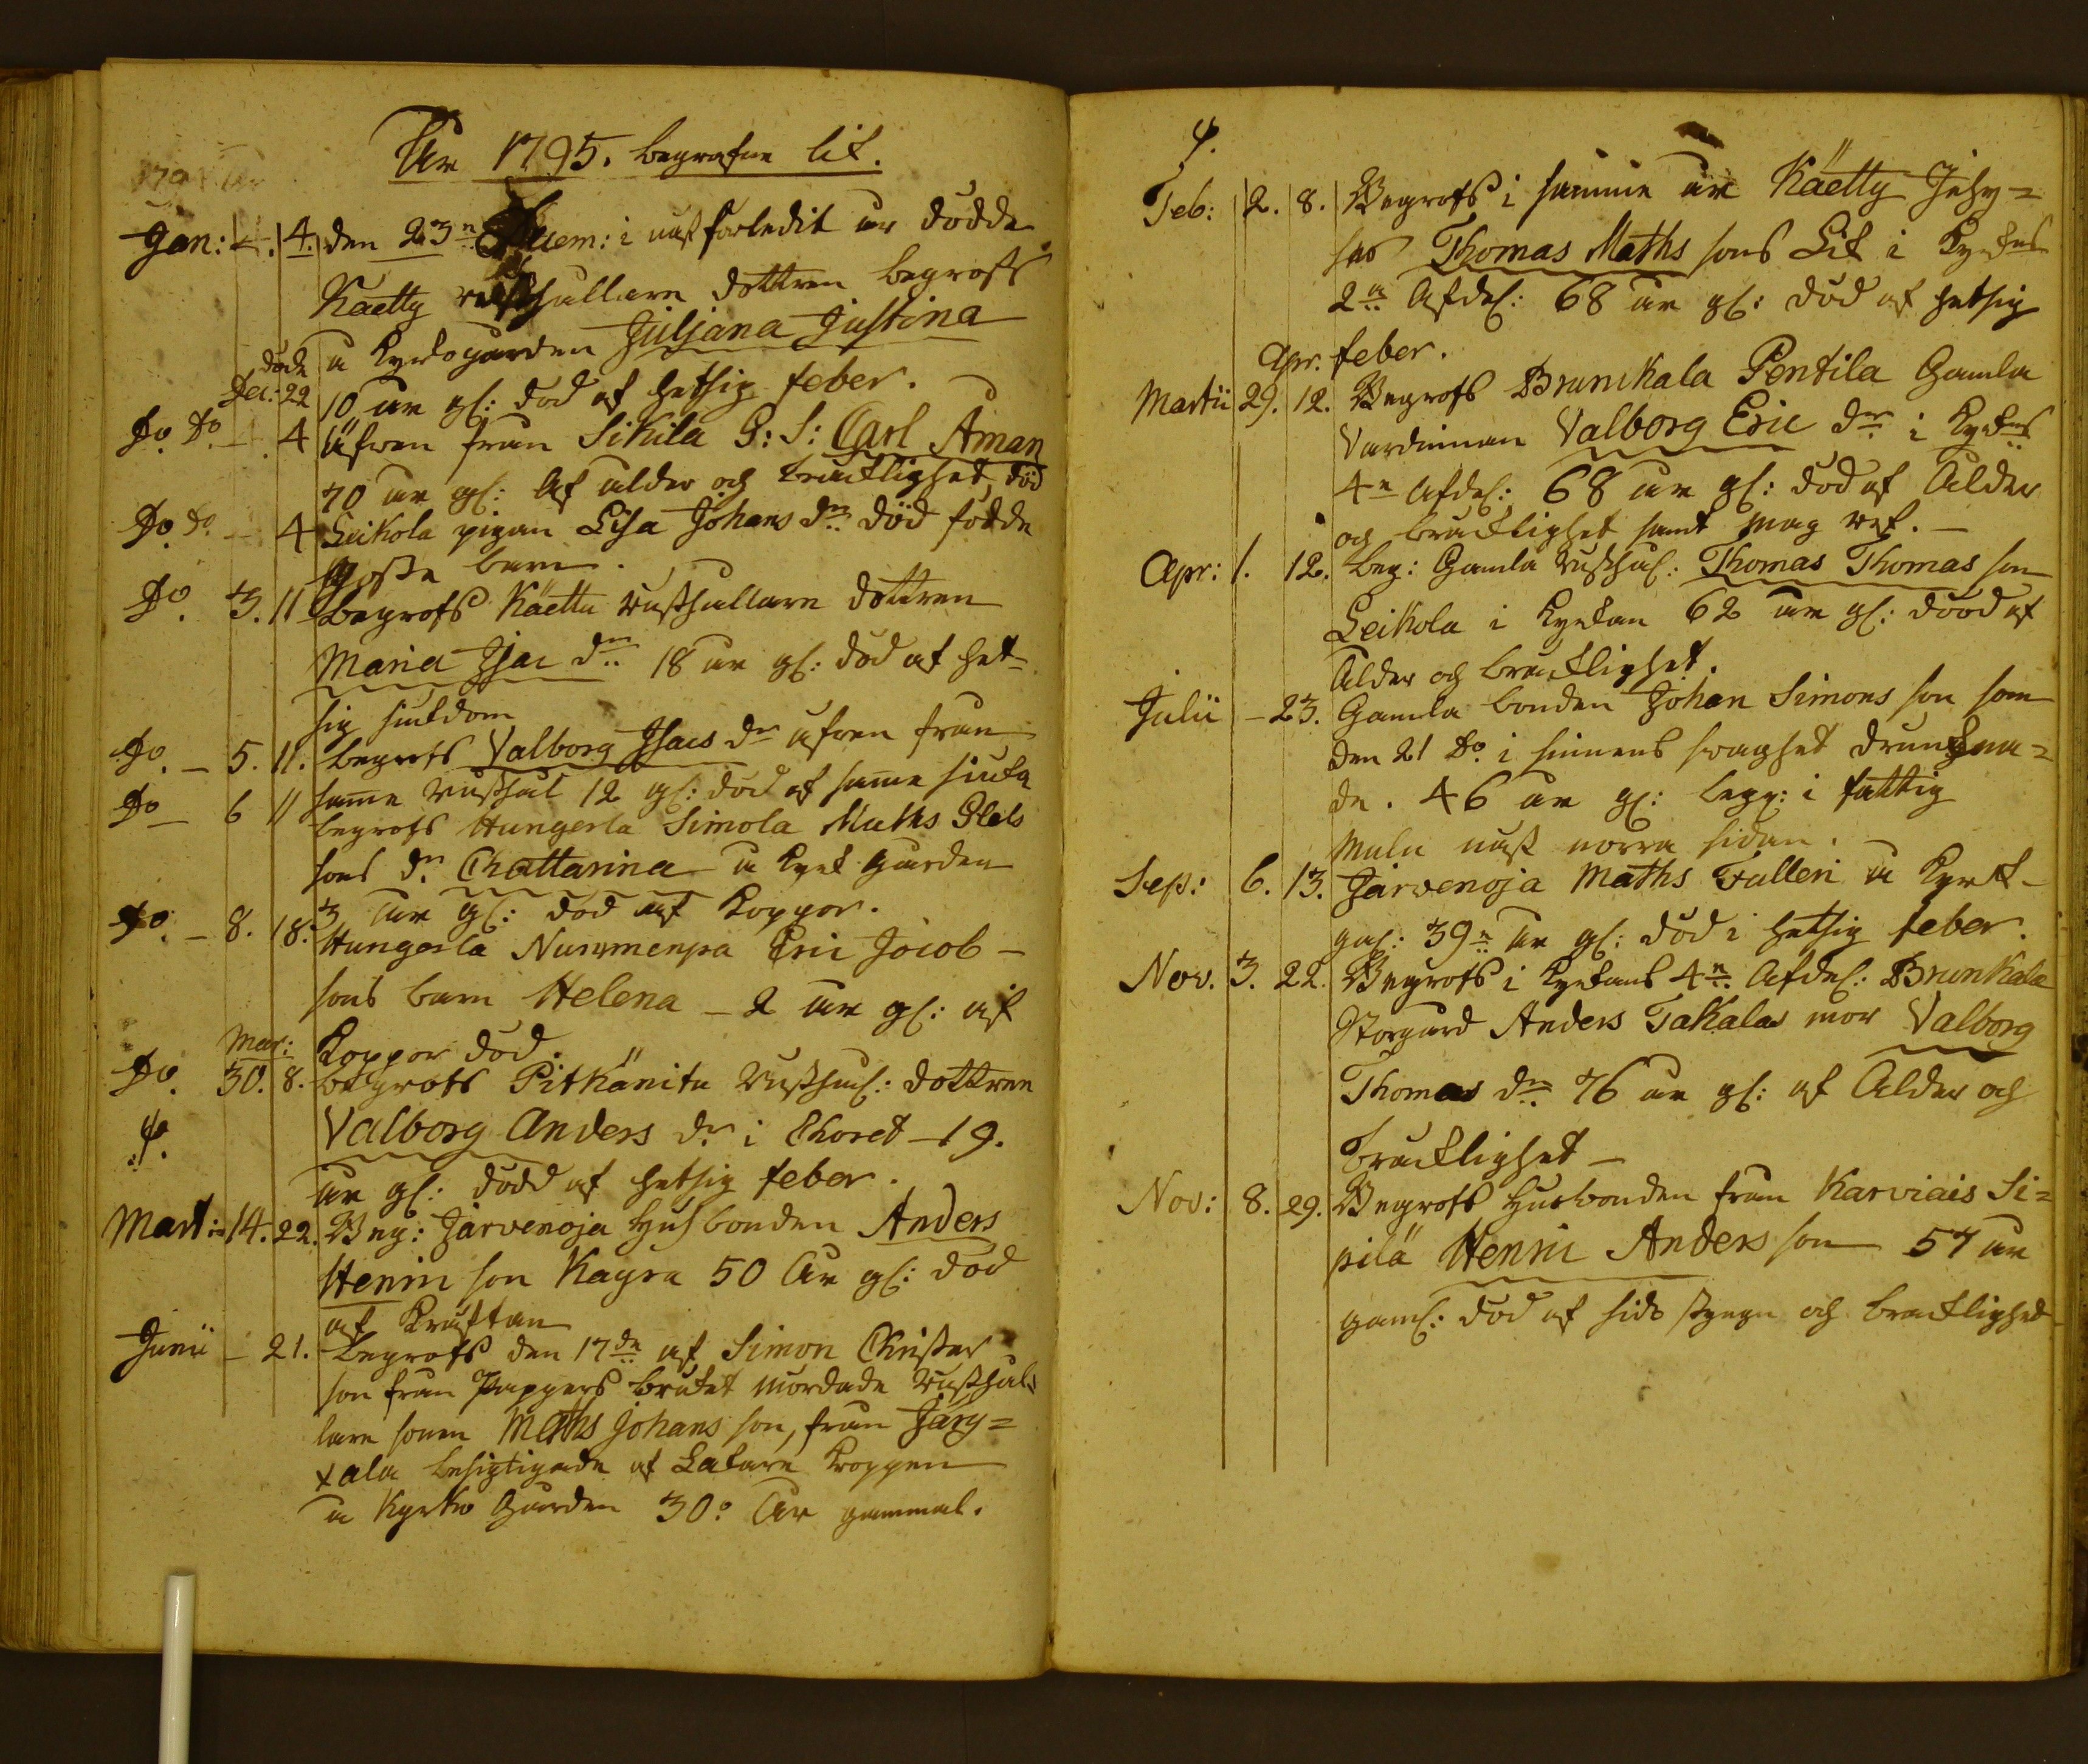 År 1795. begrafne lik.
Jan: 4. den 23n Decem: i näst förledit år dödde
Käetty rusthållare dottren begrofs
å Kyrkogården Juljana Justina
döde Dec: 22 10 år gl: död af hetsig feber.
Do Do 4 Äfven från Sikila G: S: Carl Aman
70 år gl: Af ålder och bräcklighet död
Do Do 4 Leikola pigan Lisa Johans dr död födde
gosse barn.
Do 3. 11 begrofs Käettu Rusthållare dottren
Maria Isac dr 18 år gl: död af het-
sig siukdom
Do 5. 11. begrofs Valborg Isacs dr äfven från
samme Rusthål 12 gl: död af samme siuka
Do 6 11 begrofs Hungerla Simola Maths
sons dr Chattarina å Kyrk gården
3 år gl: död af koppor.
Do 8. 18. Hungerla Nummenpä Eric Jacob-
sons barn Helena - 2 år gl: af
koppor död.
Do Mar: 30. 8. begrofs Pitkänitu Rusthål: dottren
Valborg Anders dr i Choret - 19.
år gl: dödd af hetsig feber.
Mart: 14. 22. Beg: Järvenoja Husbonden Anders
Henric son Kayra 50 år gl: död
af Kräftan
Junii - 21. begrofs den 17de af Simon Christer
son från Pappers bruket mördade Rusthål-
lare sonen Maths Johans son, från Järy=
kala besigtigade af Läkare kroppen
å Kyrko Gården 30: år gammal.
Feb: 2. 8. Begrofs i samme år Käetty Jehy=
has Thomas Maths sons Lik i Kyrkns
2a Afdel: 68 år gl: död af hetsig
feber.
Martii 29. Apr. 12. Begrofs Brunkala Pentila Gamla
Värdinnan Valborg Eric dr i Kyrkns
4n afdel: 68 år gl: död af Ålder
och bräcklighet samt mag ref.
Apr: 1. 12. beg: Gamla Rusthål: Thomas Thomas son
Leikola i Kyrkan 62 år gl: död af
Ålder och bräcklighet.
Julii - 23. Gamla bonden Johan Simons son som
den 21 Do i sinnens svaghet drunkna=
de. 46 år gl: i fattig
näst norra sidan.
Sep: 6. 13. Järvenoja Maths Tulleri å Kyrk-
går: 39n år gl: död i hetsig feber.
Nov. 3. 22. Begrofs i Kyrkans 4n Afdel: Brunkala
Storgård Anders Takalas mor Valborg
Thomas dr 76 år gl: af Ålder och
bräcklighet -
Nov: 8. 29. Begrofs Husbonden från Karviais Si=
pilä Henric Anders son 57 år
gaml: död af sido styng och bräcklighet